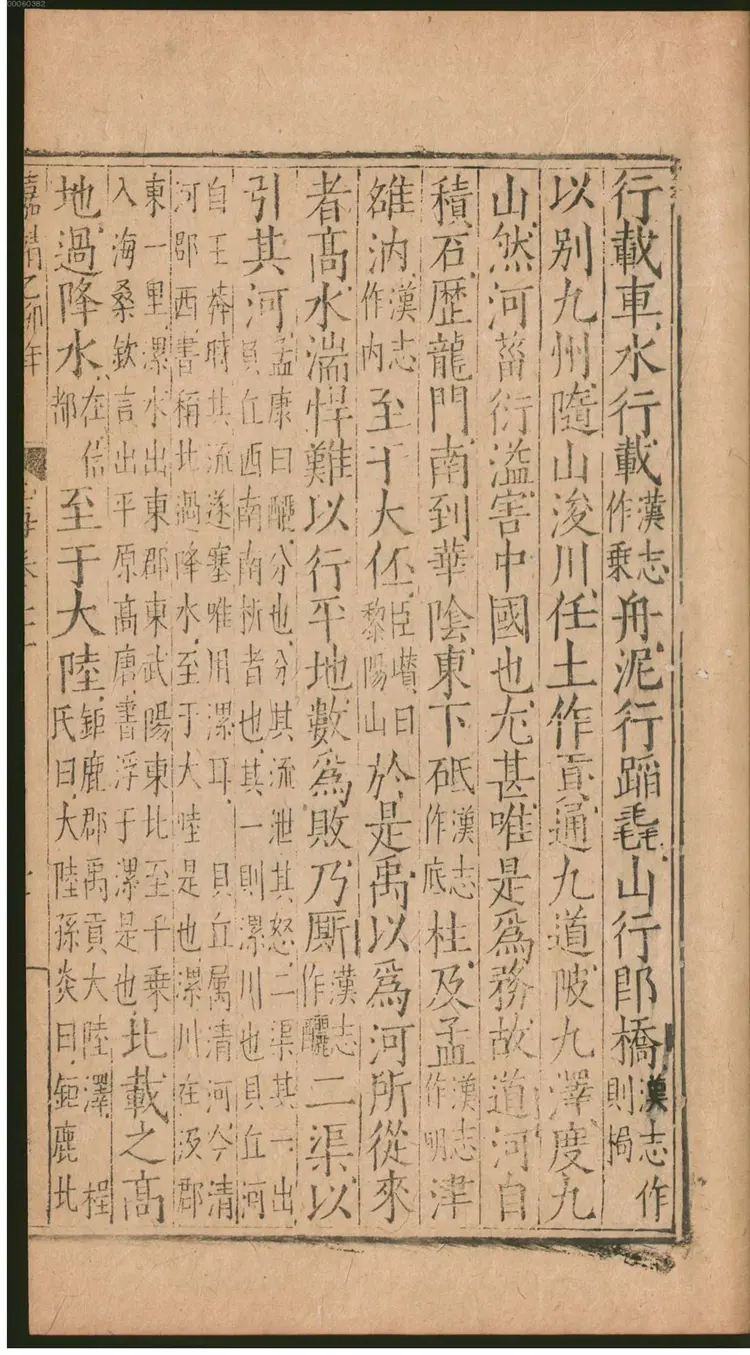 00060382
行載車水行載漢志作乗舟泥行蹈毳山行即橋漢志作則挶
以别九州隨山浚川任土作貢通九道陂九澤度九
山然河菑衍溢害中國也尤甚唯是爲務故道河自
積石歴龍門南到華隂東下砥漢志作底柱及孟漢志作明津
雄汭漢志作内至于大伾臣瓉曰黎陽山於是禹以爲河所從來
者髙水湍悍難以行平地數爲敗乃厮漢志作釃二渠以
引其河孟康曰釃分也分其流泄其怒二渠其一出貝丘西南南折者也其一則漯川也貝丘河
自王莽時其流遂塞唯用漯耳貝丘属清河今清河郡西書稱北過降水至于大陸是也漯川在汲郡
東一里漯水出東郡東武陽東北至千乗入海桑欽言出平原髙唐書浮于漯是也北載之髙
地過降水在信都至于大陸鉅鹿郡禹貢大陸澤程氏曰大陸孫炎曰鉅鹿北
嘉靖乙卯年